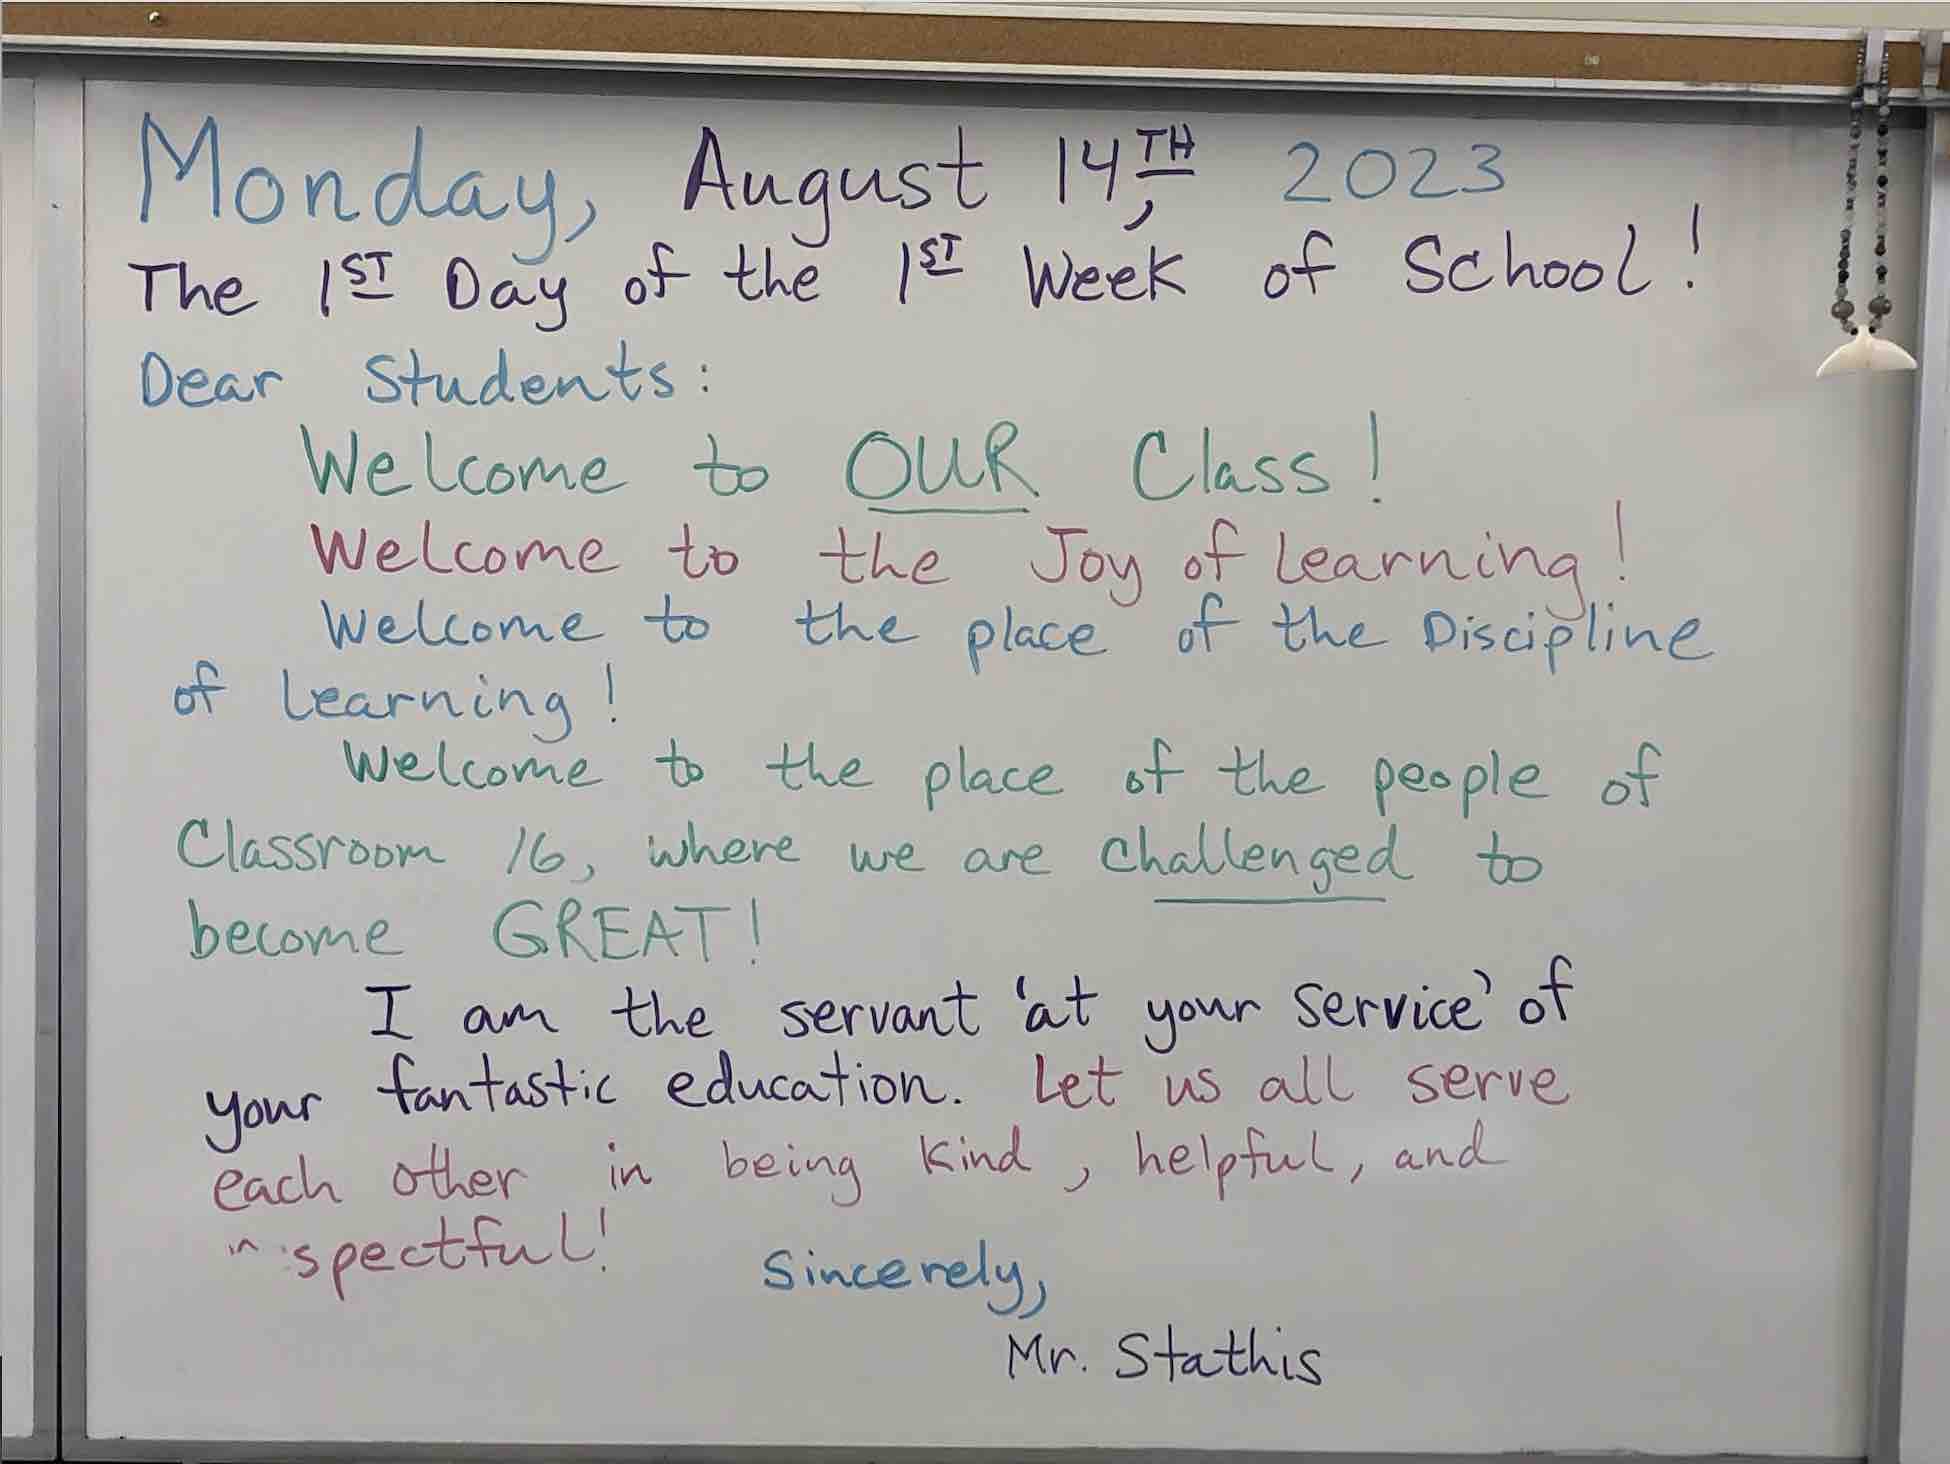 Monday, August 14TH, 2023
The 1ST Day of the 1ST Week of School!
Dear Students:
Welcome to OUR Class!
Welcome to the Joy of Learning!
Welcome to the place of the Discipline
of Learning!
Welcome to the place of the people of
Classroom 16, where we are challenged to
become GREAT!
I am the servant 'at your service' of
your fantastic education. Let us all serve
each other in being kind, helpful, and
Sincerely,
Mr. Stathis